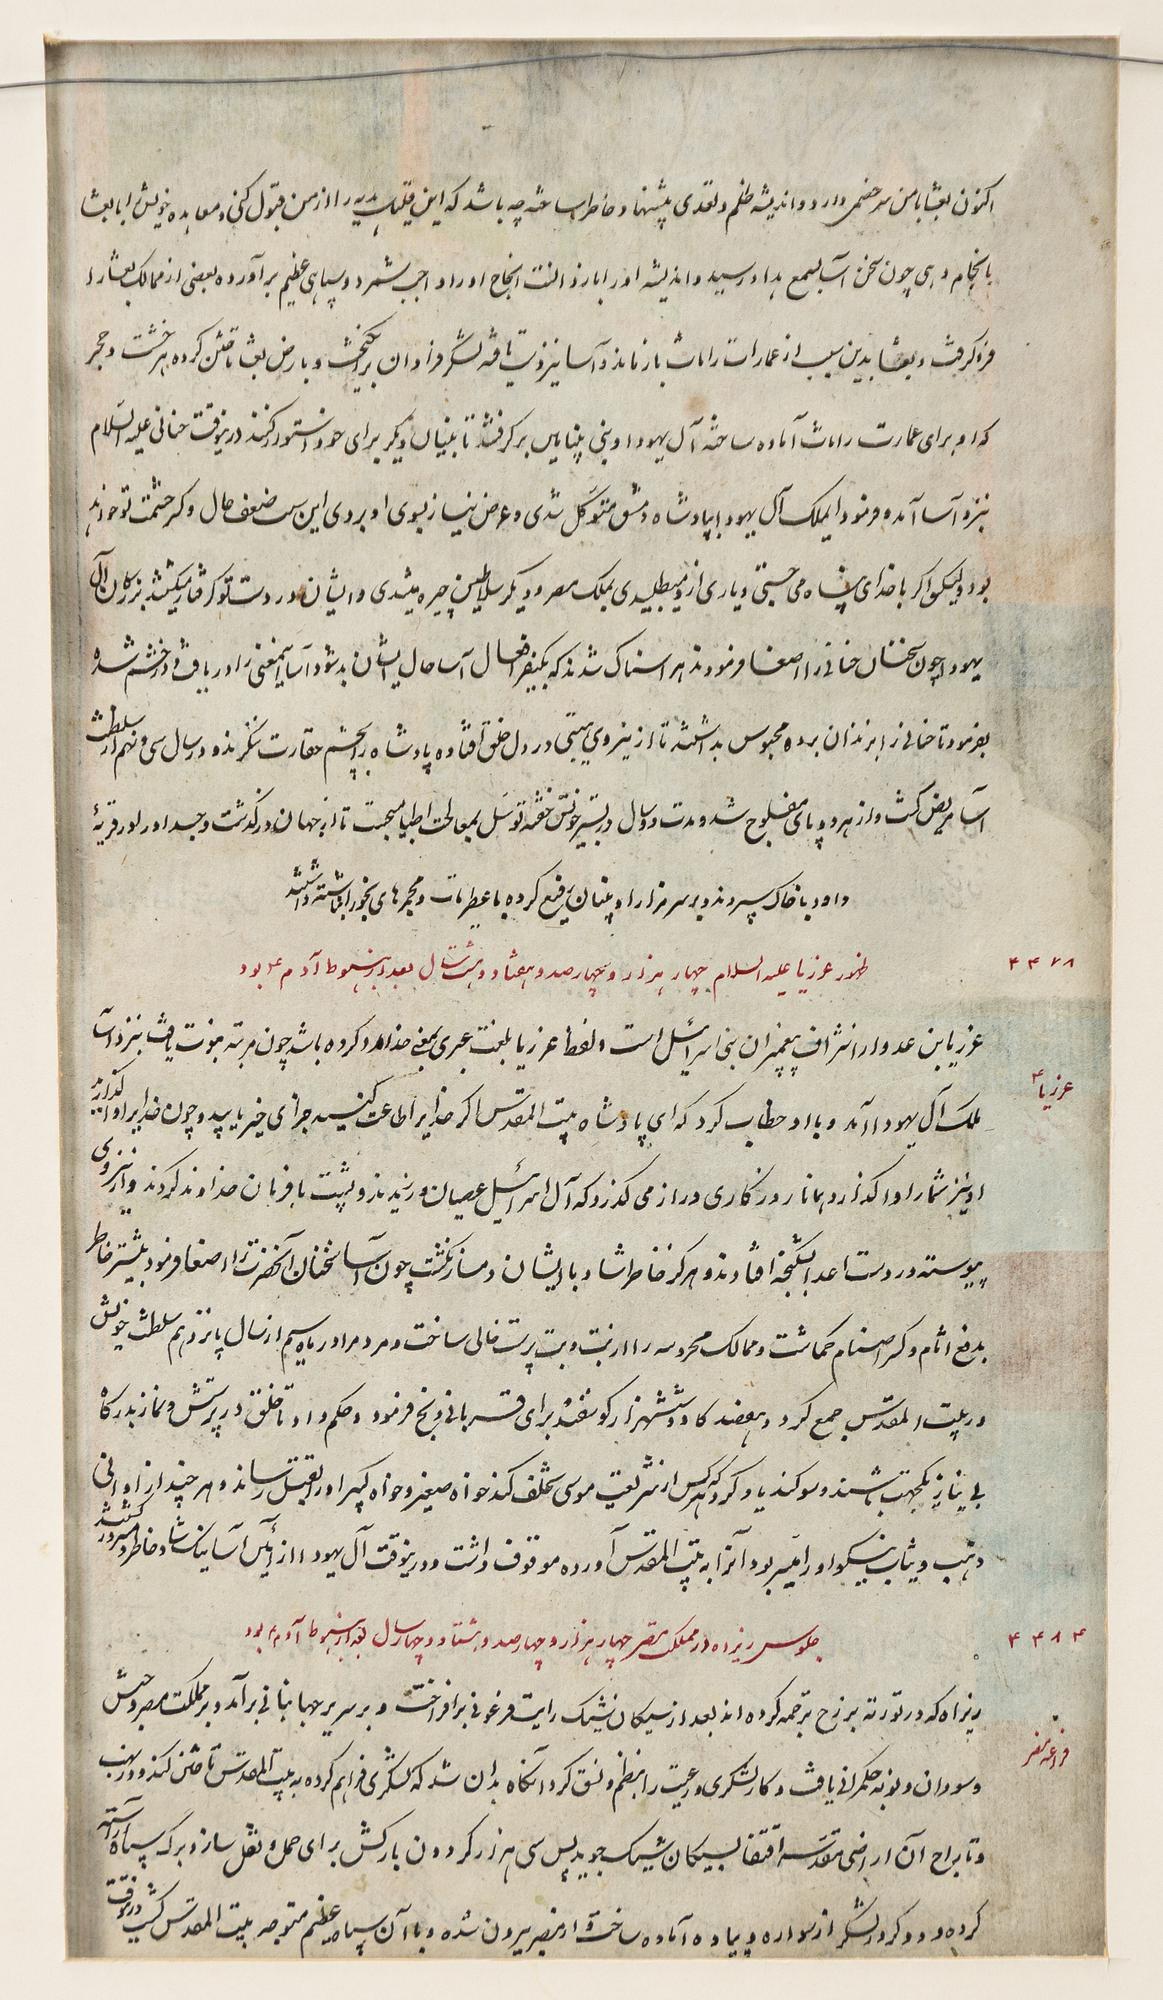 اکنون بعشا با من سر خصمی دارد و اندیشه ظلم و تعدی پیشنهاد خاطر ساخته چه باشد که این قلیل هدیه را از من قبول کنی و معاهده خویش را با بعشا
بانجام دهی چون سخن آسا بسمع بداد رسید و اندیشه او را بارز انجاح او را واجب شمرد و سپاهی عظیم برآورده بعضی از ممالک بعشا را
فرو گرفت و بعشا بدین سبب از عمارات راماث باز ماند و آسا نیز وقت یافته لشکر فراوان برانگیخت و بارض بعشا تاختن کرده هر خشت و حجر
که او برای عمارت راماث آماده ساخته آل یهودا و بنی بنیامین برگرفتند تا بنیان دیگر برای خود استوار کنند درینوقت حنانی علیه السلام
نزد آسا آمد و فرمود ای ملک آل یهودا بپادشاه دمشق متوکل شدی و عرض نیاز بسوی او بردی این سبب ضعف حال و کسر حشمت تو خواهد
بود ولیکن اگر با خدای پناه می جستی و یاری از او میطلبیدی بملک مصر و دیگر سلاطین چیره میشدی و ایشان در دست تو گرفتار میگشتند بزرگان آل
یهودا چون سخنان حنانی را اصغا فرمودند هراسناک شدند که بکیفر افعال آسا حال ایشان بد شود آسا اینمعنی را دریافت و در خشم شده
بفرمود تا حنانی را بزندان برده محبوس بداشتند تا از نیروی هیبتی در دل خلق افتاده پادشاه را بچشم حقارت ننگرند و در سال سی و نهم از سلطنت
آسا مریض گشت و از هر دو پای مفلوج شد و مدت دو سال در بستر خفته توسل بمعالجت اطبا میجست تا از جهان درگذشت و جسد او را در قریهٔ
داود با خاک سپردند و بر سر مزار او بنیان رفیع کرده با عطریات و مجمرهای بخور انباشته داشتند
ظهور عزریا علیه السلام چهار هزار و چهارصد و هفتاد و هشت سال بعد از هبوط آدم ع بود
۴۴۷۸
عزریا بن عدو از اشراف پیغمبران بنی اسرائیل است و لفظ عزریا بلغت عبری بمعنی خدا مدد کرده باشد چون مرتبه نبوت یافت بنزد آسا
عزریا ع
ملک آل یهودا آمد و با او خطاب کرد که ای پادشاه بیت المقدس اگر خدایرا طاعت کنید جزای خیر یابید و چون خدایرا واگذارید
او نیز شما را واگذارد همانا روزگاری دراز می گذرد که آل اسرائیل عصیان ورزیدند و پشت با فرمان خداوند کردند و از نیروی
پیوسته در دست اعدا بشکنجه افتادند و هرگز خاطر شاد با ایشان دمساز نگشت چون آسا سخنان آنحضرت را اصغا فرمود بیشتر خاطر
بدفع اثام و کسر اصنام گماشت و ممالک محروسه را از بت و بت پرست خالی ساخت و مردم را در ماه سیم از سال پانزدهم سلطنت خویش
در بیت المقدس جمع کرد و هفتصد گاو و ششهزار گوسفند برای قربانی ذبح فرمود و حکم داد تا خلق در پرستش و نماز بدرگاه
بی نیاز یکجهت باشند و سوگند یاد کرد که هر کس از شریعت موسی تخلف کند خواه صغیر و خواه کبیر او را بقتل رساند و هر چند از اوانی
ذهب و ثیاب نیکو او را میسر بود آنرا به بیت المقدس آورده موقوف داشت و درینوقت آل یهودا از آئین آسا نیک شاد خاطر و مسرور گشتند
جلوس زیراه در مملکت مصر چهار هزار و چهارصد و هشتاد و چهار سال بعد از هبوط آدم ع بود
۴۴۸۴
زیراه که در توریة بزرح ترجمه کرده اند بعد از سیکان شیشک رایت فرعونی برافراخت و بر سریر جهانبانی برآمد و بر مملکت مصر و حبش
فراعنه مصر
و سودان و نوبه حکمرانی یافت و کار لشکری و رعیت را بنظم و نسق کرد آنگاه بدان شد که لشکری فراهم کرده به بیت المقدس تاختن کند و در نهب
و تاراج آن اراضی مقدسه اقتفا بسیکان شیشک جوید پس سی هزار گردون بارکش برای حمل و نقل ساز و برگ سپاه آراسته
کرده و دو کرور لشکر از سواره و پیاده آماده ساخت و از مصر بیرون شده و با آن سپاه عظیم متوجه بیت المقدس گشت درینوقت